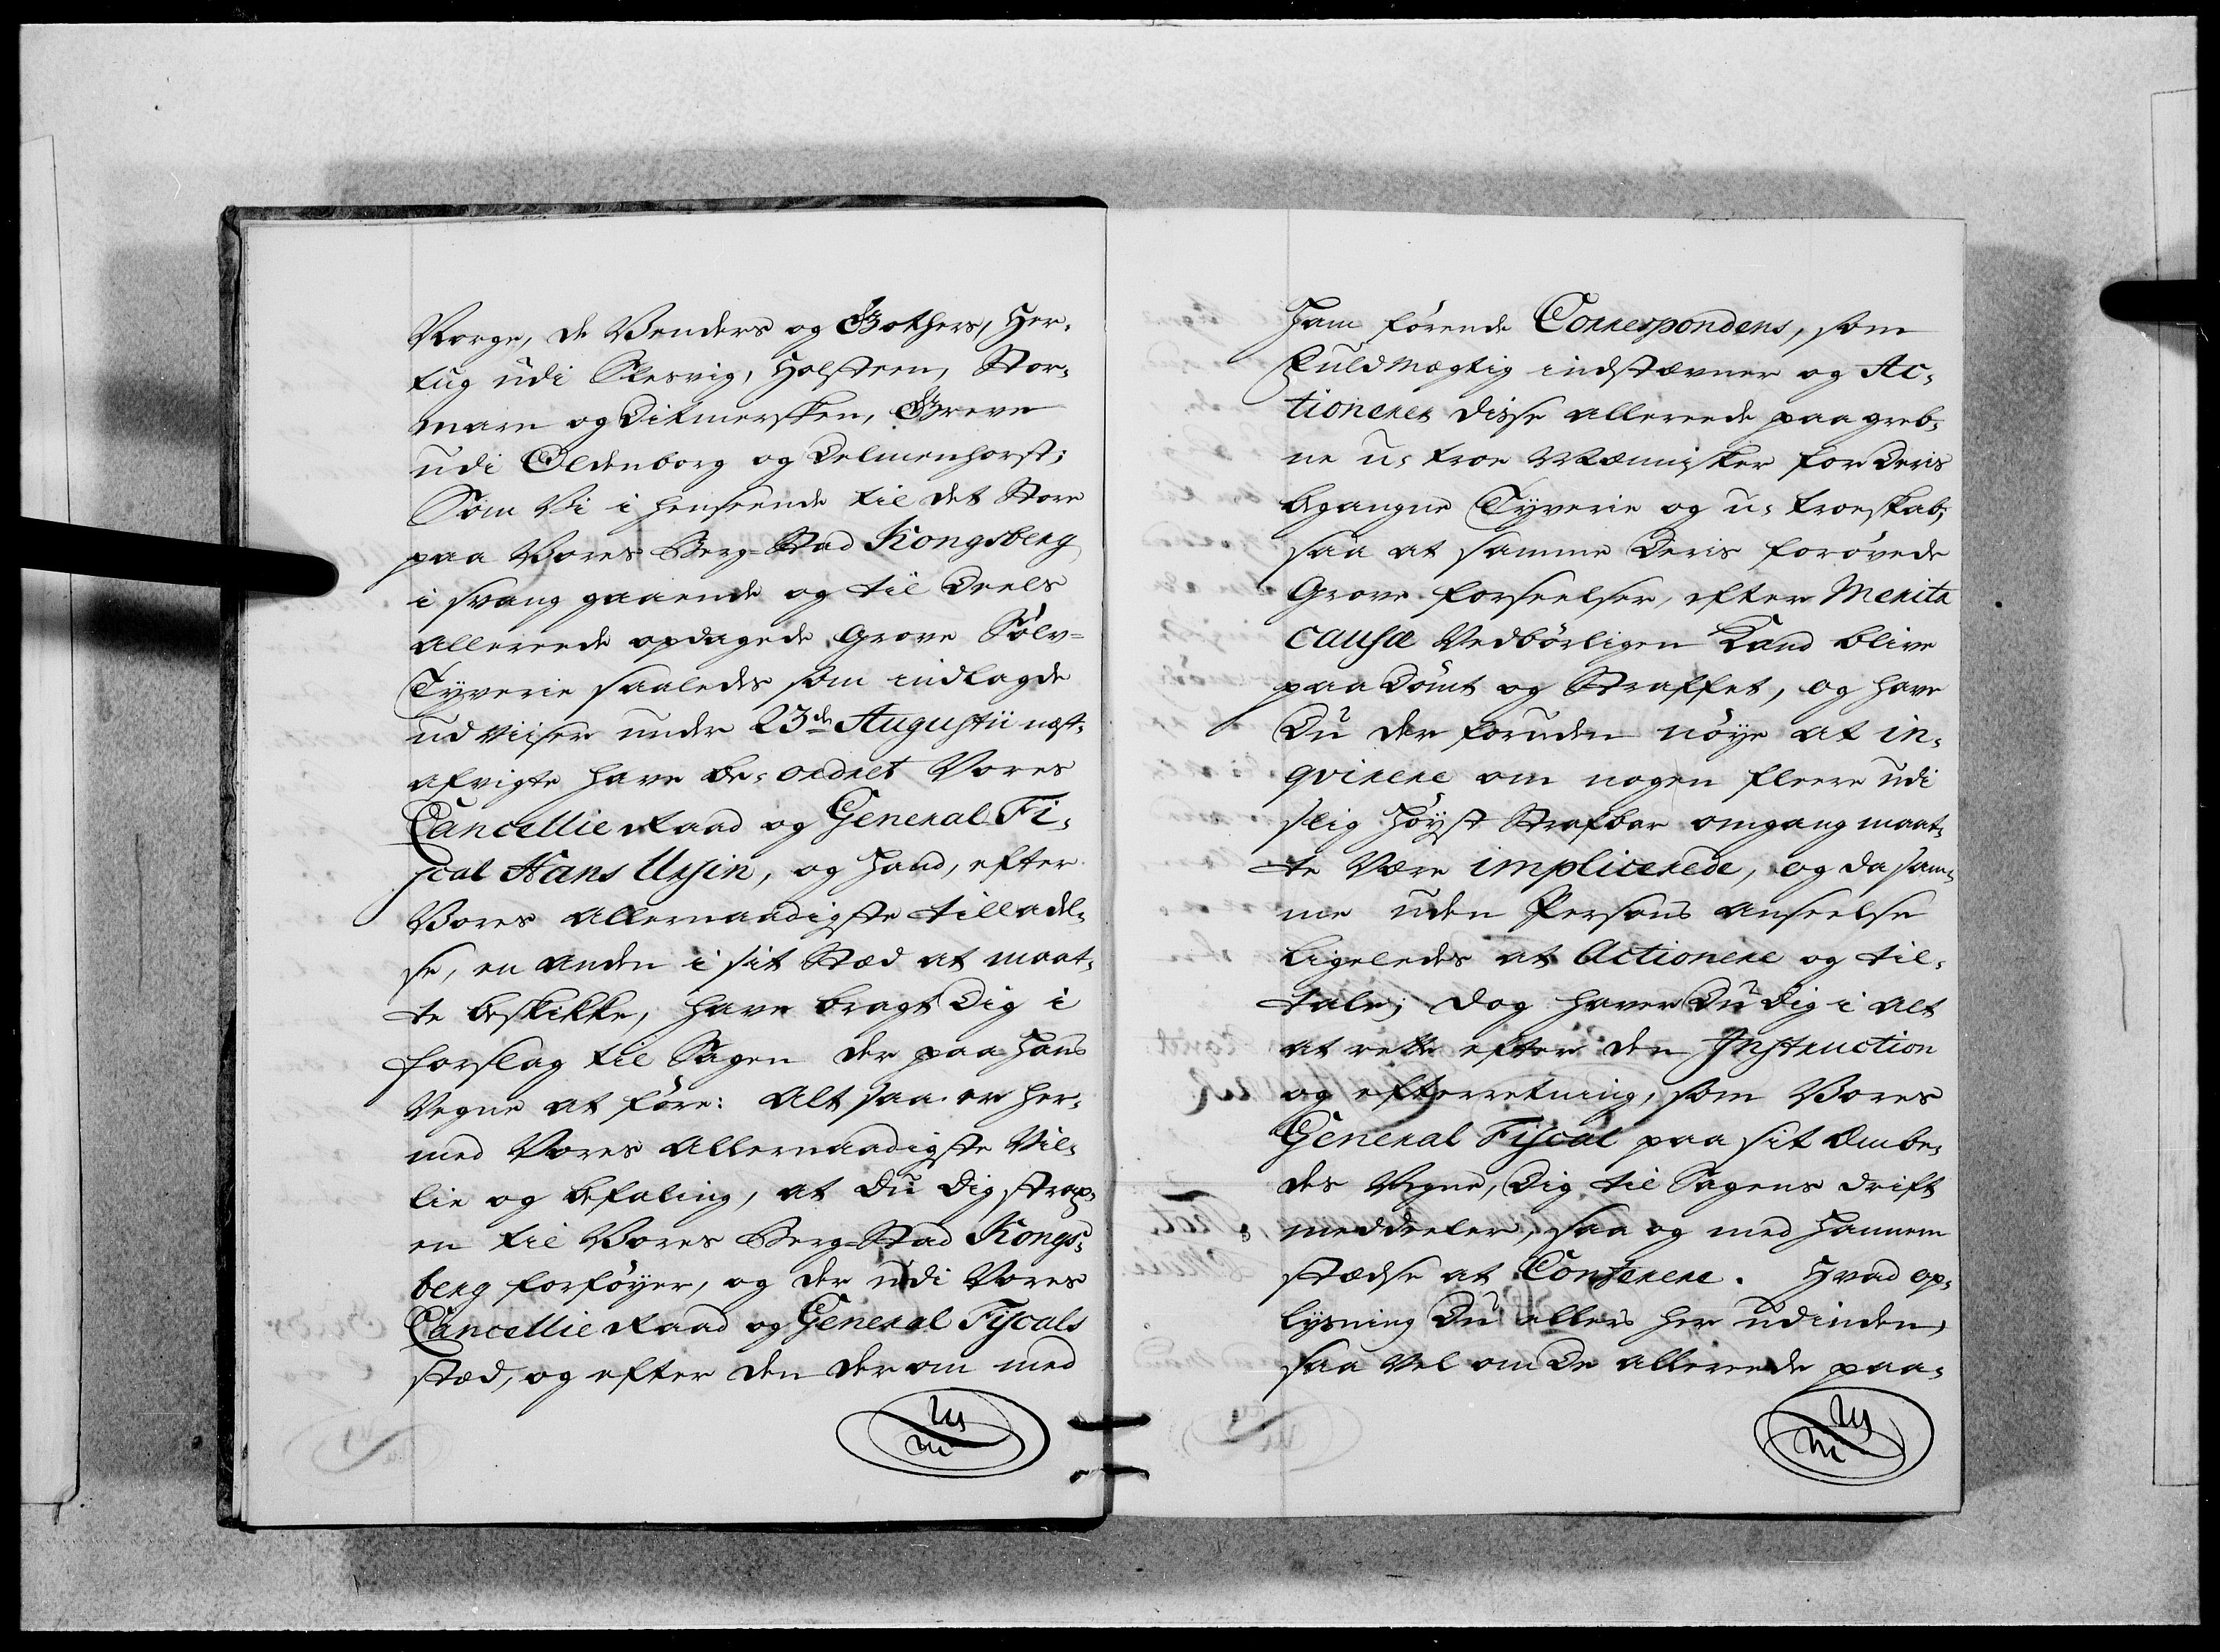 Norge, de Venders og Gothers, Her,
tug udi Slesvig, Holsteen, Stor,
marn og Ditmersken, Greve
udi Oldenborg og Delmenhorst;
Som Vi i henseende til det Store
paa Vores Berg-Stad Kongsberg
i svang gaaende og til Deels
allereede opdagede grove Sölv-
Tyverie saaledes som indlagde
udviiser under 23de Augustii næst,
afvigte have be-ordret Vores
Cancellie Raad og General Fi,
scal Hans Ursin, og Hand, efter
Vores allernaadigste tilladel,
se, en anden i sit Stæd at maat,
te beskikke, have bragt Dig i
forslag til Sagen der paa Hans
Vegne at före: Alt saa er her,
med Vores Allernaadigste Vil,
lie og befaling, at du dig strax,
en til Vores Berg-Stad Kongs,
berg forföyer, og der udi Vores
Cancellie Raad og General Fiscals
stæd, og efter den der om med
Ham förende Correspondens, som
Fuldmægtig indstævner og Ac,
tionerer disse allereede paa greb,
ne u-troe Mænnisker for Deris
begangne Tyverie og u-troeskab,
saa at samme Deris forövede
Grove forseelser, efter Merita
causæ Vedbörligen Kand blive
paa Dömt og Straffet, og have
Du der foruden nöye at in,
qvirere om nogen fleere udi
slig Höyst Strafbar omgang maat,
te Være implicerede, og da sam,
me uden Persons anseelse
ligeledes at Actionere og til,
tale; dog haver Du dig i alt
at rette efter den Instruction
og efterretning, som Vores
General Fiscal paa sit Embe,
des Vegne, Dig til Sagens drift
meddeeler, saa og med Hannem
stædse at Conferere. Hvad op,
lysning Du ellers her udinden,
saa vel om De allereede paa,